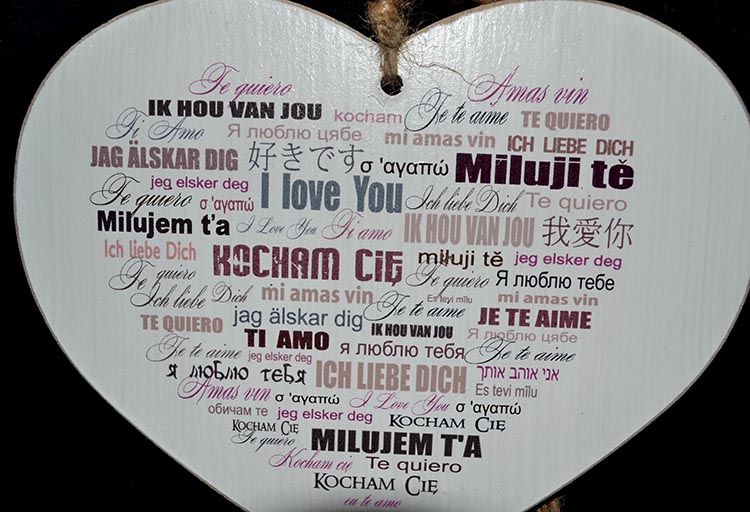 Te quiero Amas vin
IK HOU VAN JOU kocham Je te aime TE QUIERO
Ti Amo Я люблю цябе mi amas vin ICH LIEBE DICH
JAG ÄLSKAR DIG 好きです σ 'αγαπώ Miluji tě
jeg elsker deg I love You Ich liebe Dich Te quiero
Te quiero σ 'αγαπώ
Milujem ťa I Love You Ti amo IK HOU VAN JOU 我愛你
Ich liebe Dich KOCHAM CIĘ miłuji tě jeg elsker deg
Te quiero Te quiero Я люблю тебе
Ich liebe Dich mi amas vin Es tevi mīlu mi amas vin
TE QUIERO jag älskar dig Je te aime JE TE AIME
TI AMO IK HOU VAN JOU Я люблю цябе
Je te aime jeg elsker deg я люблю тебя Je te aime
я люблю тебя ICH LIEBE DICH אני אוהב אותך
Amas vin σ 'αγαπώ I Love You σ 'αγαπώ Es tevi mīlu
обичам те jeg elsker deg KOCHAM CIĘ
KOCHAM CIĘ
Te quiero MILUJEM T'A
Kocham cię Te quiero
KOCHAM CIĘ
eu te amo